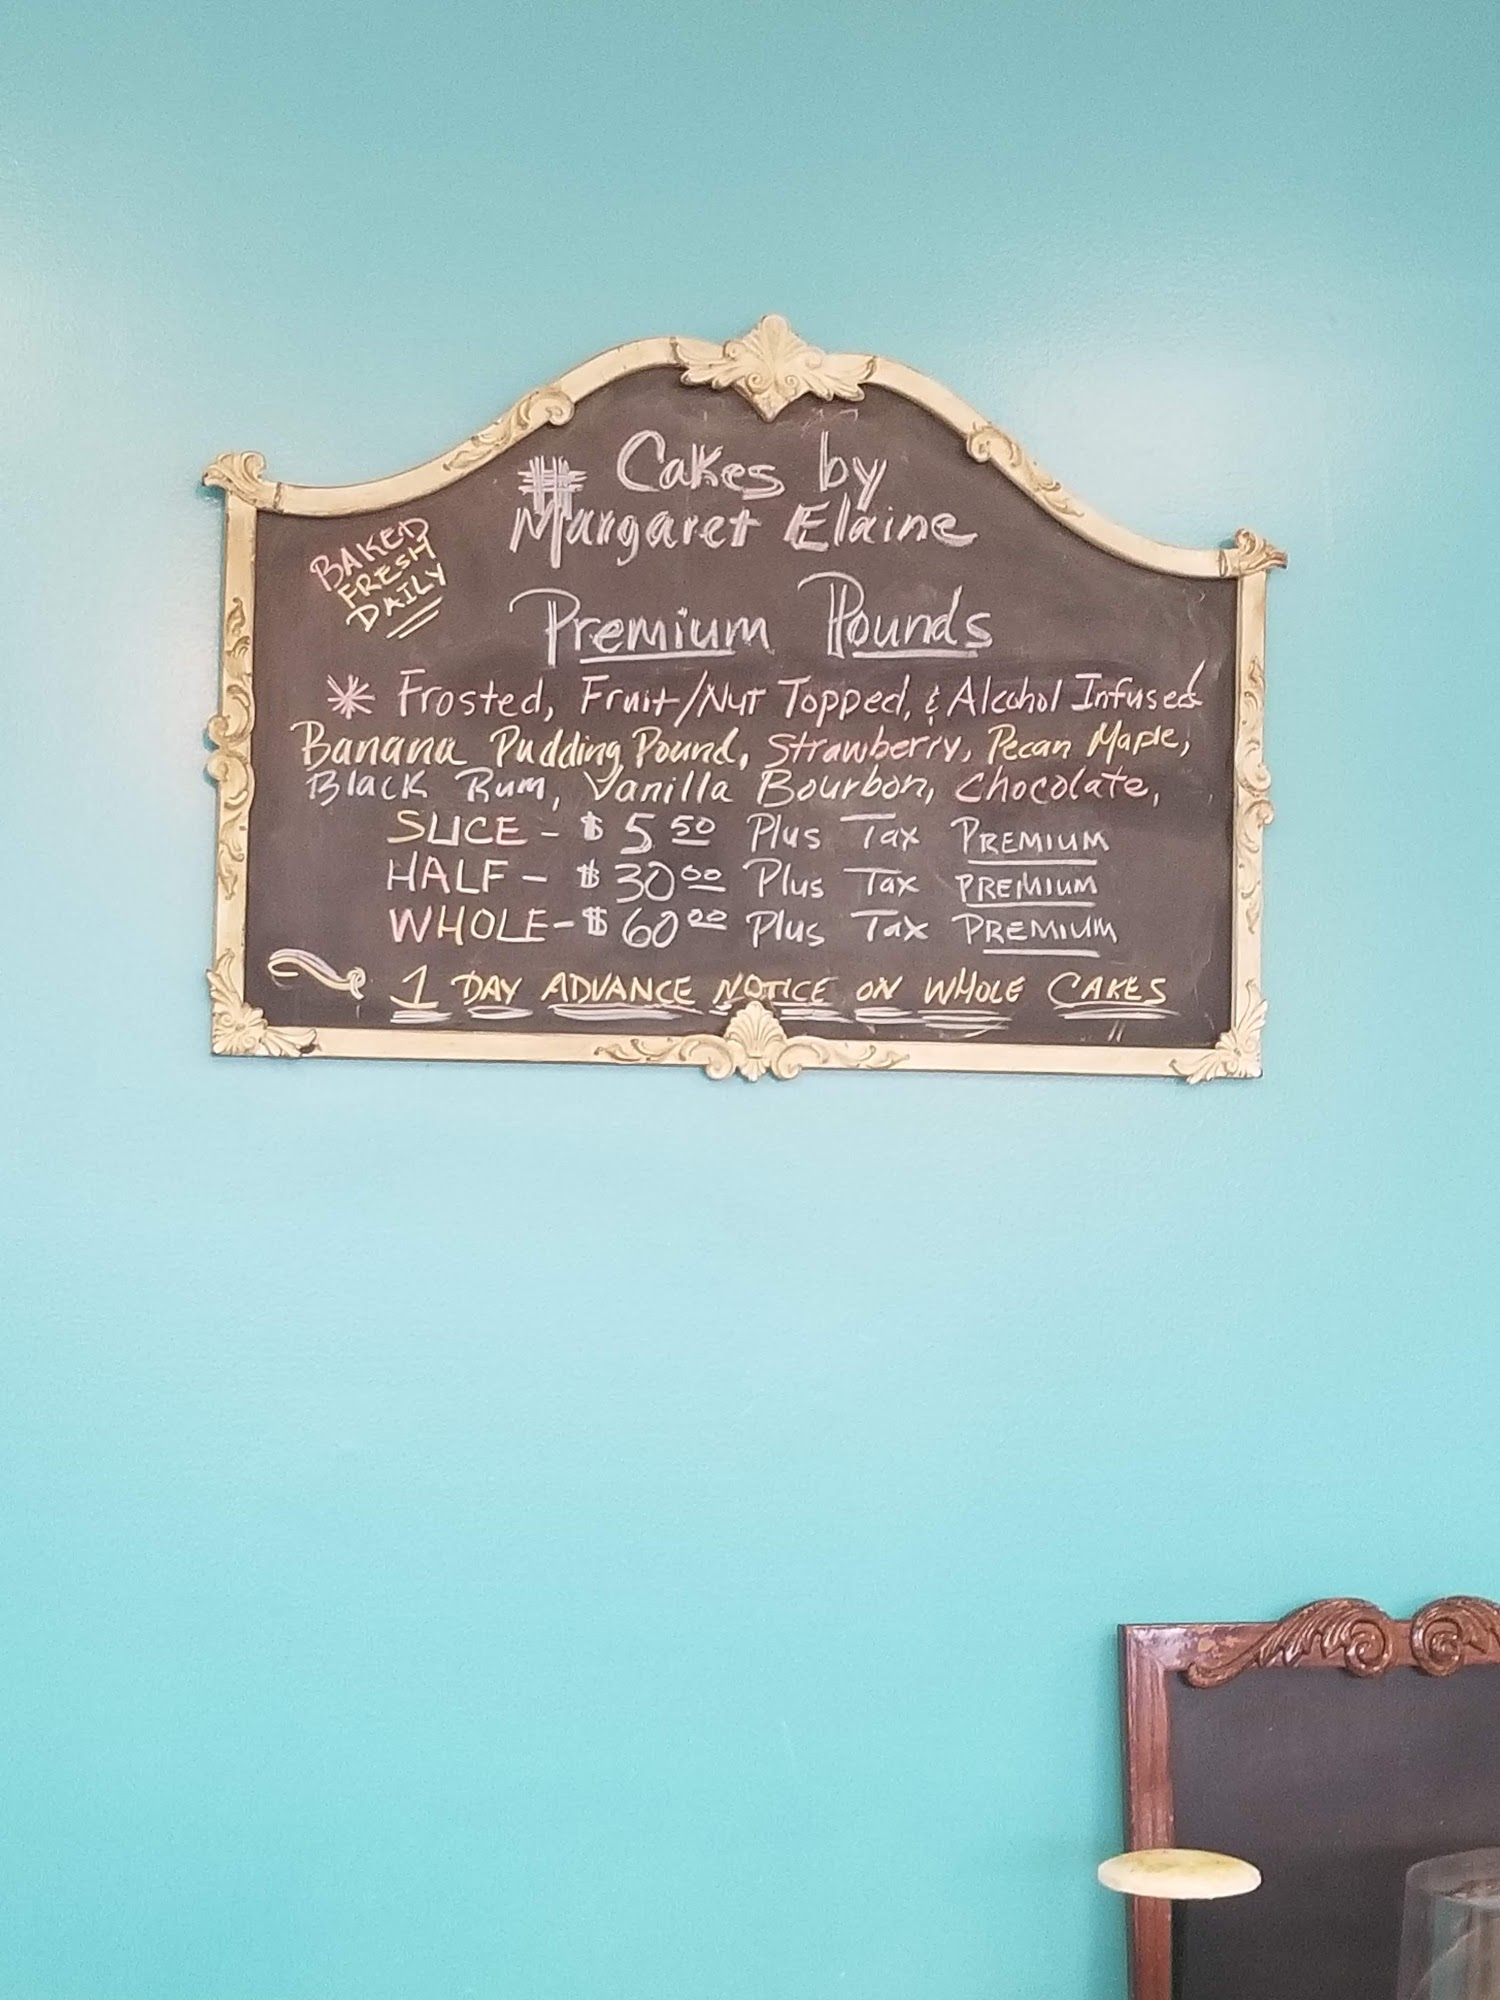 # Cakes by
Margaret Elaine
BAKED
FRESH
DAILY
Premium Pounds
* Frosted, Fruit/Nut Topped, & Alcohol Infused
Banana Pudding Pound, Strawberry, Pecan Maple,
Black Rum, Vanilla Bourbon, Chocolate,
SLICE - $5.50 Plus Tax PREMIUM
HALF - $30.00 Plus Tax PREMIUM
WHOLE - $60.00 Plus Tax PREMIUM
1 DAY ADVANCE NOTICE ON WHOLE CAKES